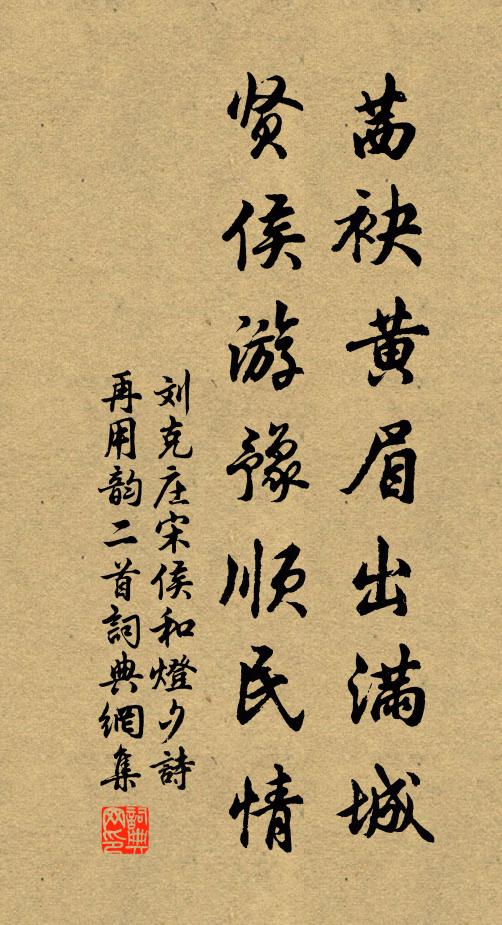 茜袂黄眉出满城
贤侯游豫顺民情
刘克庄宋侯和燈夕詩
再用韵二首詞典網集
詞典
网印